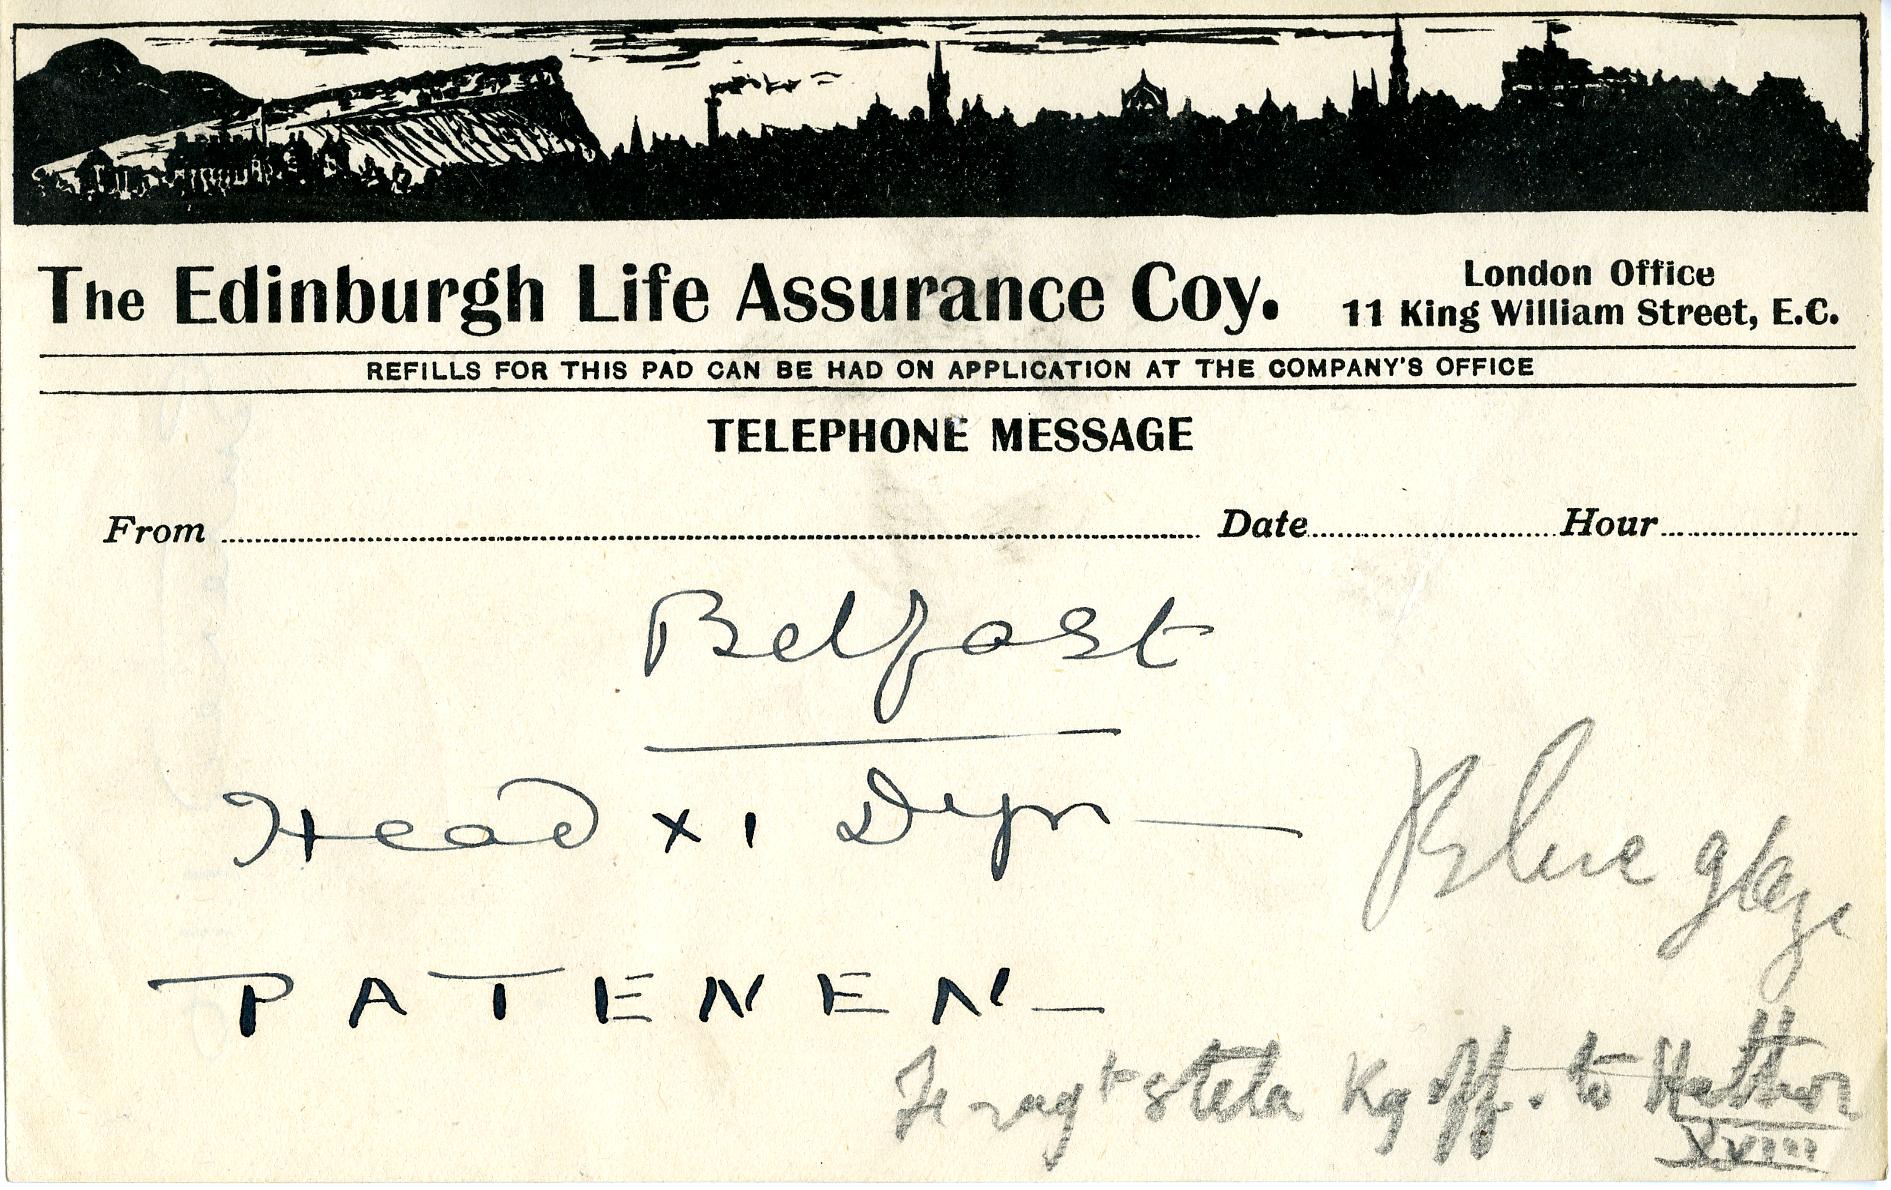 The Edinburgh Life Assurance Coy.
London Office
11 King William Street, E.C.
REFILLS FOR THIS PAD CAN BE HAD ON APPLICATION AT THE COMPANY'S OFFICE
TELEPHONE MESSAGE
From Date Hour
Belfast
Head XI Dyn —
Blue glaze
PATENEN —
Fragt stela Kg off. to Hathor
XVIII